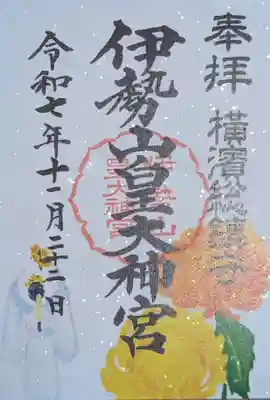 奉拝
横濱総鎮守
伊勢山皇大神宮
令和七年十一月二十二日